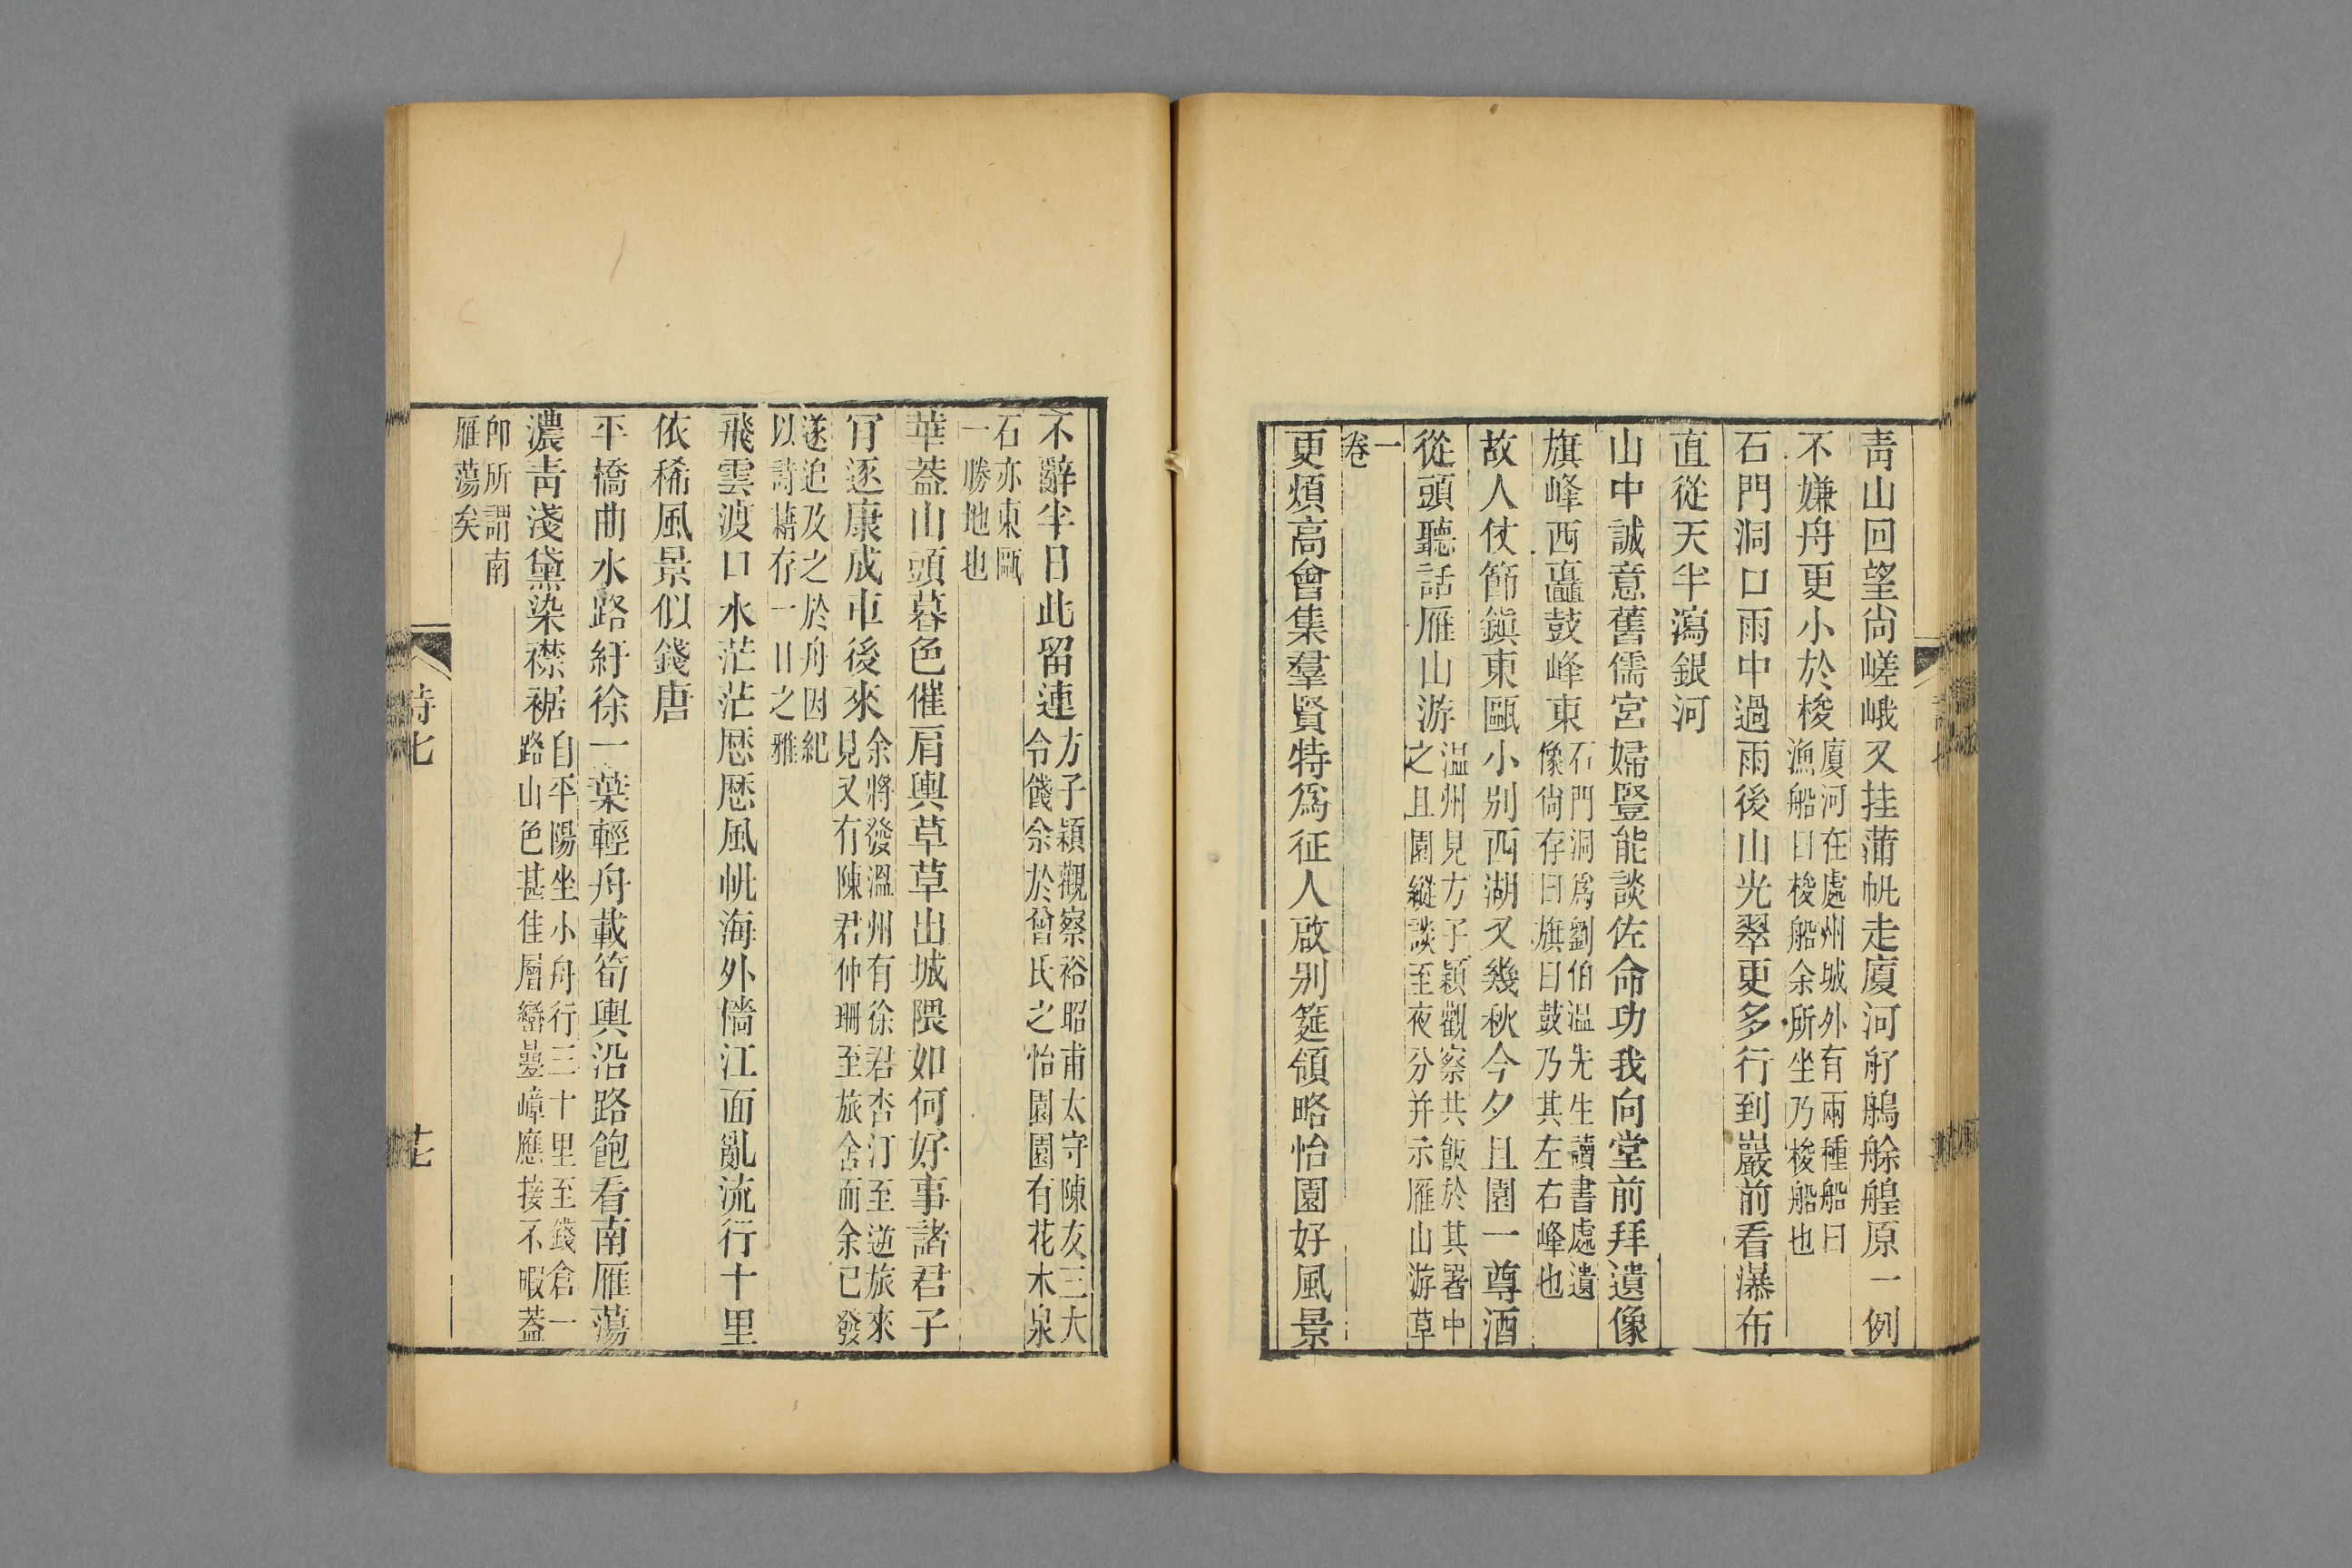 青山回望尙嵯峨又挂蒲帆走廈河舴艋艅艎原一例
不嫌舟更小於梭廈河在處州城外有兩種船曰漁船曰梭船余所坐乃梭船也
石門洞口雨中過雨後山光翠更多行到巖前看瀑布
直從天半瀉銀河
山中誠意舊儒宮婦豎能談佐命功我向堂前拜遺像
旗峰西矗鼓峰東石門洞爲劉伯溫先生讀書處遺像尙存曰旗曰鼓乃其左右峰也
故人仗節鎭東甌小别西湖又幾秋今夕且園一尊酒
從頭聽話雁山游溫州見方子穎觀察共飯於其署中之且園縱談至夜分并示雁山游草
一卷
更煩高會集羣賢特爲征人啟别筵領略怡園好風景
不辭半日此留連方子穎觀察裕昭甫太守陳友三大令餞余於曾氏之怡園園有花木泉
石亦東甌一勝地也
華葢山頭暮色催肩輿草草出城隈如何好事諸君子
肎逐康成車後來余將發溫州有徐君杏汀至逆旅來見又有陳君仲珊至旅舍而余已發
遂追及之於舟因紀以詩藉存一日之雅
飛雲渡口水茫茫歷歷風帆海外檣江面亂流行十里
依稀風景似錢唐
平橋曲水路紆徐一葉輕舟載筍輿沿路飽看南雁蕩
濃靑淺黛染襟裾自平陽坐小舟行三十里至錢倉一路山色甚佳層巒曡嶂應接不暇葢
卽所謂南雁蕩矣
詩七